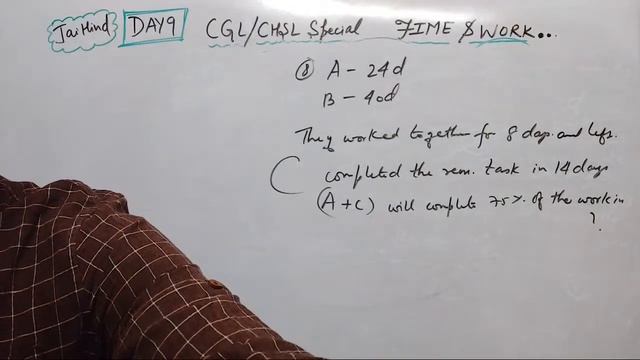 Jai Hind DAY9 CGL/CHSL Special TIME & WORK...
① A - 24d
B - 40d
They worked together for 8 days and left.
C completed the rem. task in 14 days
(A+C) will complete 75% of the work in
?